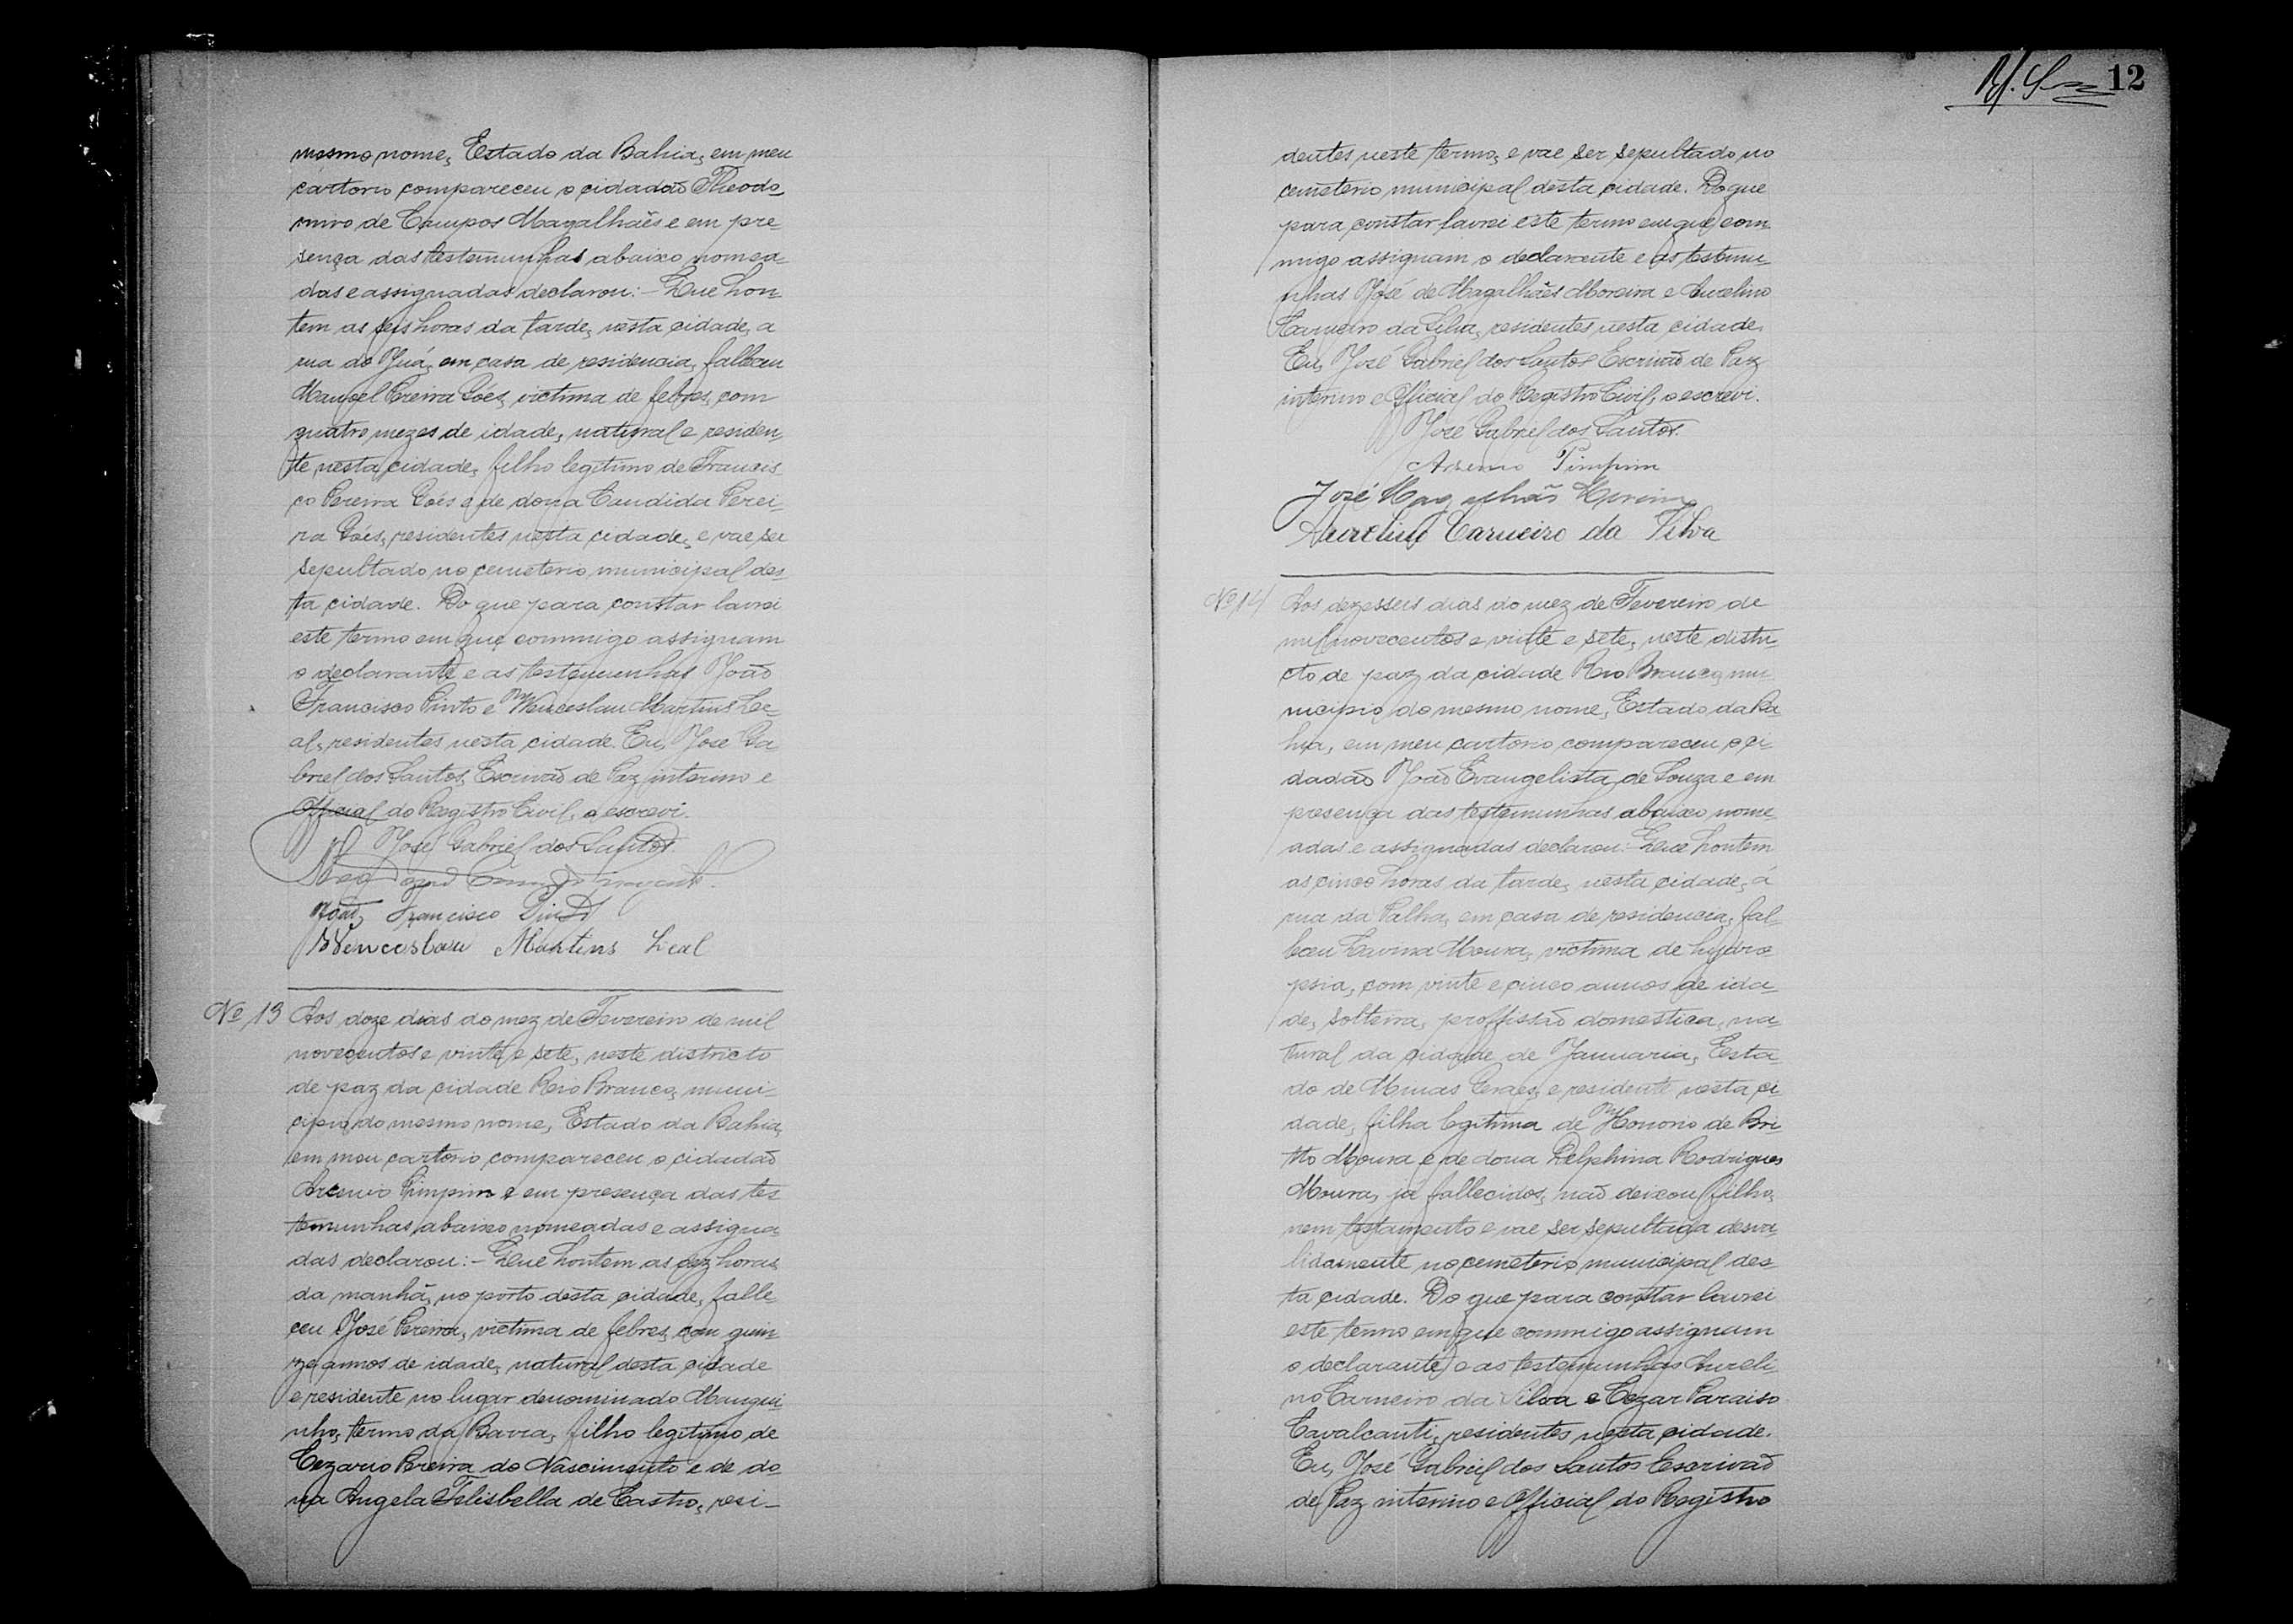 mesmo nome, Estado da Bahia, em meu
cartorio compareceu o cidadão Theodo-
miro de Campos Magalhães e em pre-
sença das testemunhas abaixo nomea-
das e assignadas declarou: – Que hon-
tem as seis horas da tarde, nesta cidade, a
rua do Juá, em casa de residencia, falleceu
Manoel Pereira Góes, victima de febres, com
quatro mezes de idade, natural e residen-
te nesta cidade, filho legitimo de Francis-
co Pereira Góes e de dona Candida Perei-
ra Góes, residentes nesta cidade, e vae ser
sepultado no cemeterio municipal des-
ta cidade. Do que para constar lavrei
este termo em que commigo assignam
o declarante e as testemunhas João
Francisco Pinto e Wenceslau Martins Le-
al, residentes nesta cidade. Eu, José Ga-
briel dos Santos, Escrivão de Paz interino e
Official do Registro Civil, o escrevi.
José Gabriel dos Santos
João Francisco Pinto
Wenceslau Martins Leal
Nº 13 Aos doze dias do mez de Fevereiro de mil
novecentos e vinte e sete, neste districto
de paz da cidade Rio Branco, muni-
cipio do mesmo nome, Estado da Bahia,
em meu cartorio compareceu o cidadão
Arsenio Pimpim e em presença das tes-
temunhas abaixo nomeadas e assigna-
das declarou: – Que hontem as dez horas
da manhã, no porto desta cidade, falle-
ceu José Pereira, victima de febres, com quin-
ze annos de idade, natural desta cidade
e residente no lugar denominado Mangui-
nho, termo da Barra, filho legitimo de
Cezario Pereira do Nascimento e de do-
na Angela Felisbella de Castro, resi-
12
dentes neste termo, e vae ser sepultado no
cemeterio municipal desta cidade. Do que
para constar lavrei este termo em que com-
migo assignam o declarante e as testemu-
nhas José de Magalhães Moreira e Aurelino
Carneiro da Silva, residentes nesta cidade.
Eu, José Gabriel dos Santos Escrivão de Paz
interino e Official do Registro Civil, o escrevi.
José Gabriel dos Santos.
Arsenio Pimpim
José Magalhães Moreira
Aurelino Carneiro da Silva
Nº 14 Aos dezesseis dias do mez de Fevereiro de
mil novecentos e vinte e sete, neste distri-
cto de paz da cidade Rio Branco, mu-
nicipio do mesmo nome, Estado da Ba-
hia, em meu cartorio compareceu o ci-
dadão João Evangelista de Souza e em
presença das testemunhas abaixo nome-
adas e assignadas declarou: – Que hontem
as cinco horas da tarde, nesta cidade, á
rua da Palha, em casa de residencia, fal-
leceu Lavina Moura, victima de hydro-
psia, com vinte e cinco annos de ida-
de, solteira, proffissão domestica, na-
tural da cidade de Januaria, Esta-
do de Minas Geraes, e residente nesta ci-
dade, filha legitima de Honorio de Bri-
tto Moura e de dona Delphina Rodrigues
Moura, já fallecidos, não deixou filho,
nem testamento e vae ser sepultada desva-
lidamente no cemeterio municipal des-
ta cidade. Do que para constar lavrei
este termo em que commigo assignam
o declarante e as testemunhas Aureli-
no Carneiro da Silva e Cezar Paraiso
Cavalcanti, residentes nesta cidade.
Eu, José Gabriel dos Santos Escrivão
de Paz interino e Official do Registro